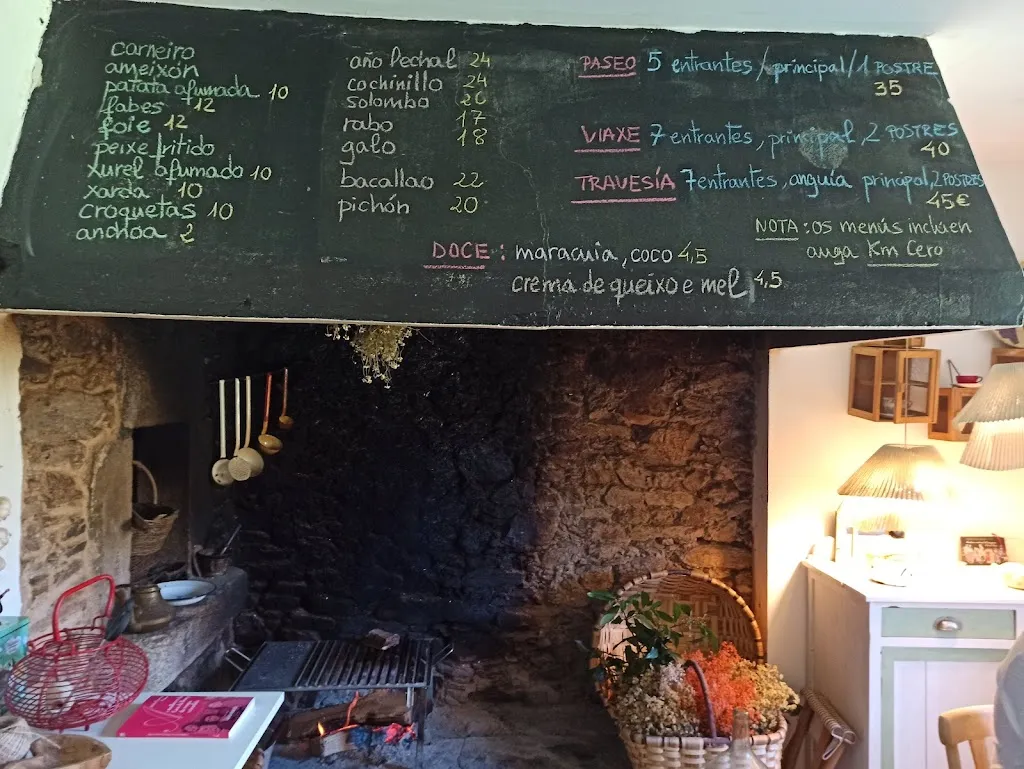 carneiro
ameixón
patata afumada 10
fabes 12
foie 12
peixe fritido
xurel afumado 10
xarda 10
croquetas 10
anchoa 2
año lechal 24
cochinillo 24
solombo 20
rabo 17
galo 18
bacallao 22
pichón 20
PASEO 5 entrantes / principal / 1 POSTRE
35
VIAXE 7 entrantes, principal, 2 POSTRES
40
TRAVESÍA 7 entrantes, anguía principal, 2 POSTRES
45€
NOTA: os menús inclúen
auga Km Cero
DOCE: maracuia, coco 4,5
crema de queixo e mel 4,5